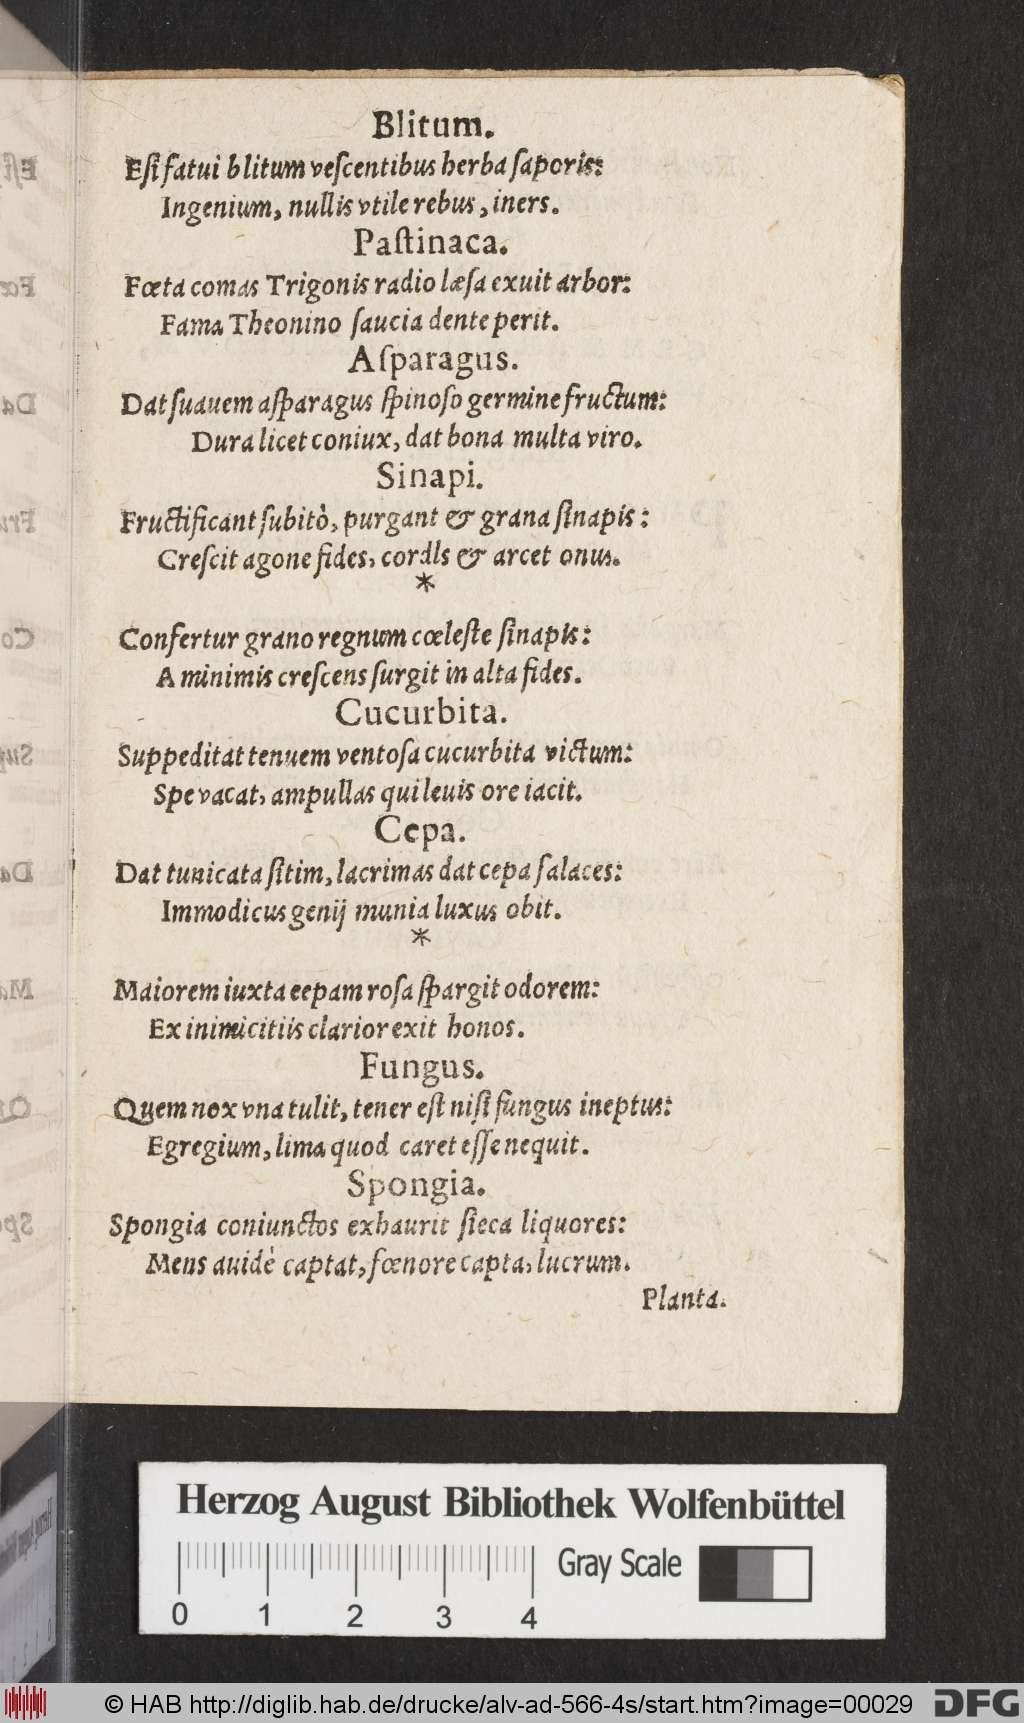 Blitum.
Eſt fatui blitum veſcentibus herba ſaporis:
Ingenium, nullis vtile rebus, iners.
Paſtinaca.
Fœta comas Trigonis radio læſa exuit arbor:
Fama Theonino ſaucia dente perit.
Aſparagus.
Dat ſuauem aſparagus ſpinoſo germine fructum:
Dura licet coniux, dat bona multa viro.
Sinapi.
Fructificant ſubitò, purgant & grana ſinapis:
Creſcit agone fides, cordIs & arcet onus.
*
Confertur grano regnum cœleſte ſinapis:
A minimis creſcens ſurgit in alta fides.
Cucurbita.
Suppeditat tenuem ventoſa cucurbita victum:
Spe vacat, ampullas qui leuis ore iacit.
Cepa.
Dat tunicata ſitim, lacrimas dat cepa ſalaces:
Immodicus genij munia luxus obit.
*
Maiorem iuxta eepam roſa ſpargit odorem:
Ex inimicitiis clarior exit honos.
Fungus.
Quem nox vna tulit, tener eſt niſi fungus ineptus:
Egregium, lima quod caret eſſe nequit.
Spongia.
Spongia coniunctos exhaurit ſieca liquores:
Mens auidè captat, fœnore capta, lucrum.
Planta.
Herzog August Bibliothek Wolfenbüttel
Gray Scale
0 1 2 3 4
© HAB http://diglib.hab.de/drucke/alv-ad-566-4s/start.htm?image=00029
DFG